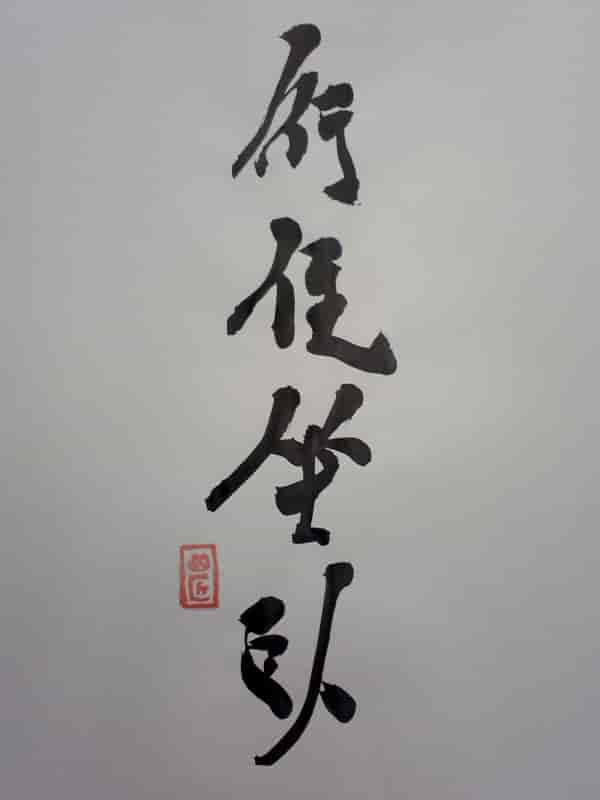 行住坐臥